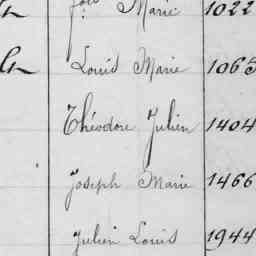 Jos Marie 1022
Louis Marie 1065
Théodore Julien 1404
Joseph Marie 1466
Julien Louis 1944